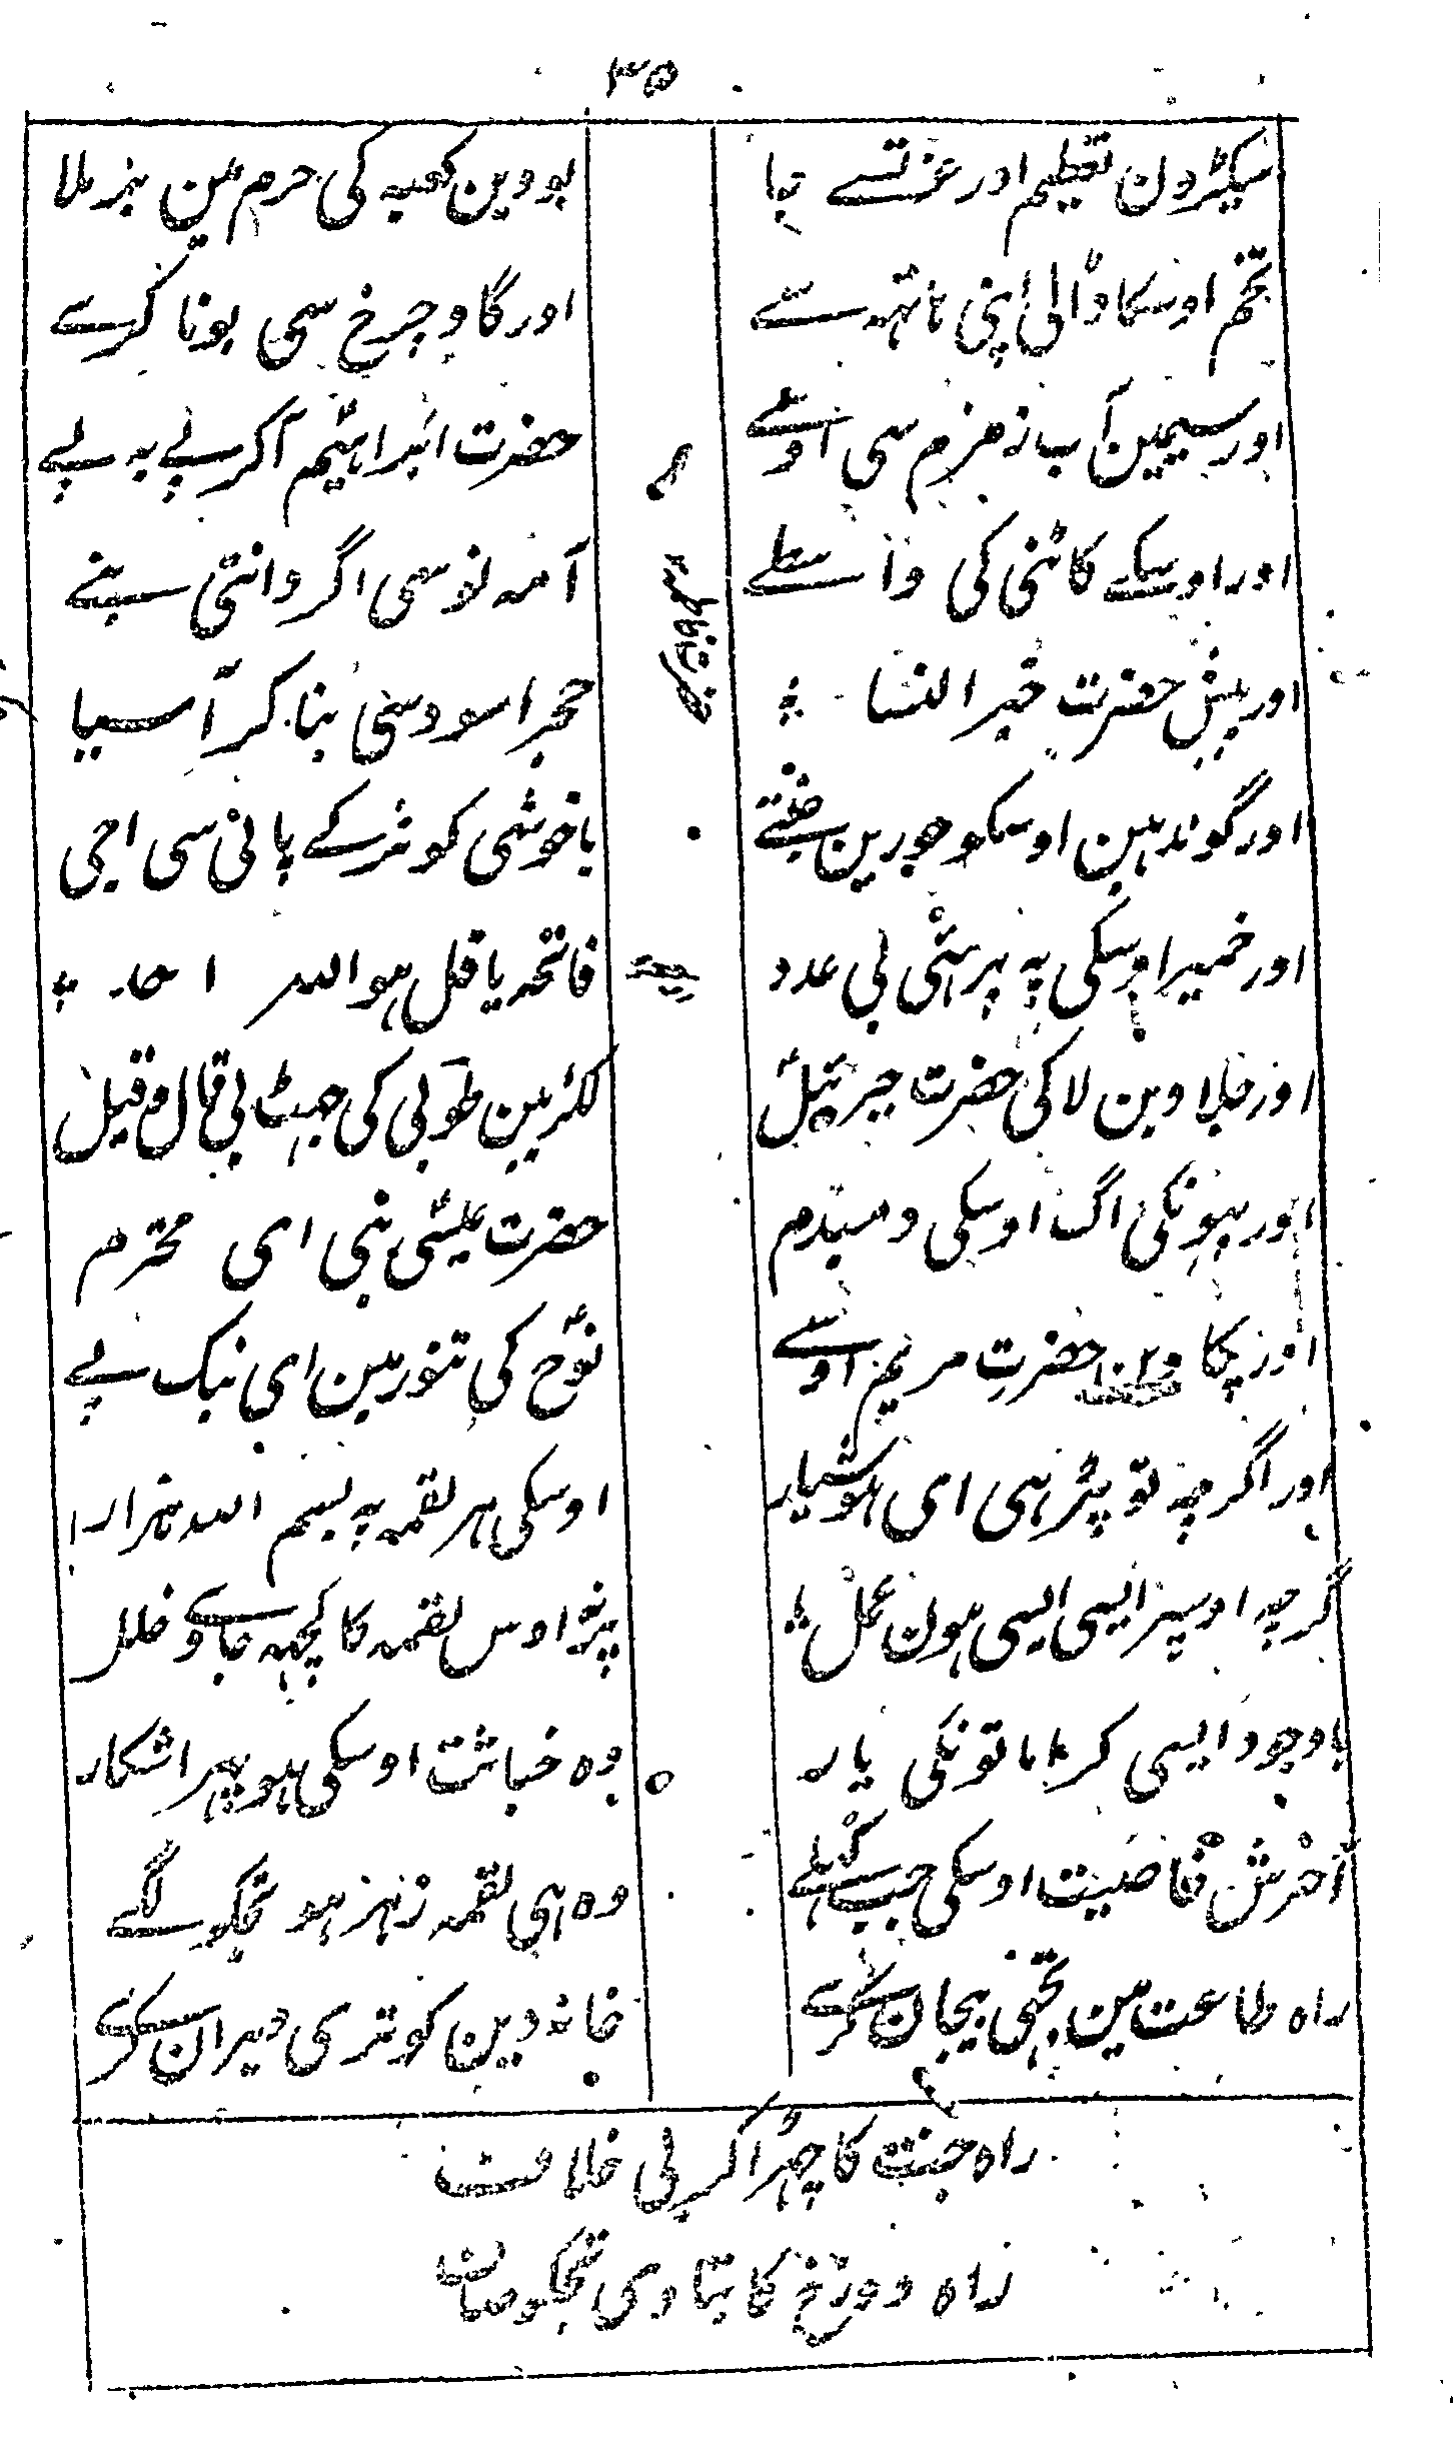 ۳۵
سیکڑون تعظیم اور عزتسے بجا
بوودین کعبہ کی حرم مین بر ملا
تخم اوسکا ڈالی اپنی ہاتھہ سے
اور گاو چرخ سی بونا کرے
اور سیمین آب زمزم سی اوسے
حضرت ابراہیمؑ آکر پے بہ پے
اور اوسکے کاٹنی کی واسطے
آ مہ نو سی اگر دانتی بنے
اور پیش حضرت خیر النسا
حجر اسود سی بنا کر آسیا
اور گوندہین اوسکو حورین جنتے
باخوشی کوثر کے پانی سی اجی
اور خمیر اوسکی پہ پرہئی بی عدد
فاتحہ یا قل ہو اللہ احد
اور جلاوین لاکی حضرت جبرئیلؑ
لکڑیین طوبی کی جہٹ بی قال و قیل
اور پہونکی اگ اوسکی دمبدم
حضرت عیسٰیؑ نبی ای محترم
اور پکاوین حضرت مریم اوسے
نوحؑ کی تنور مین ای نیک پے
اور اگرچہ تو پڑہی ای ہوشیار
اوسکی ہر لقمہ پہ بسم اللہ ہزار
گرچہ اوسپر ایسی ایسی ہون عمل
پر نہ اوس لقمہ کا کچھہ جاوے خلل
باوجود ایسی کراماتونکی یار
وہ خباثت اوسکی ہو پہر اشکار
آخرش خاصیت اوسکی جب کہلے
وہ ہی لقمہ زہر ہو تجکو لگے
راہ طاعت مین تجہی بیجان کرے
خانہ دین کو تری ویران کرے
راہ جنت کا چہڑا کر بی خلاف
راہ دوزخ کا بتا دی تجکو صاف